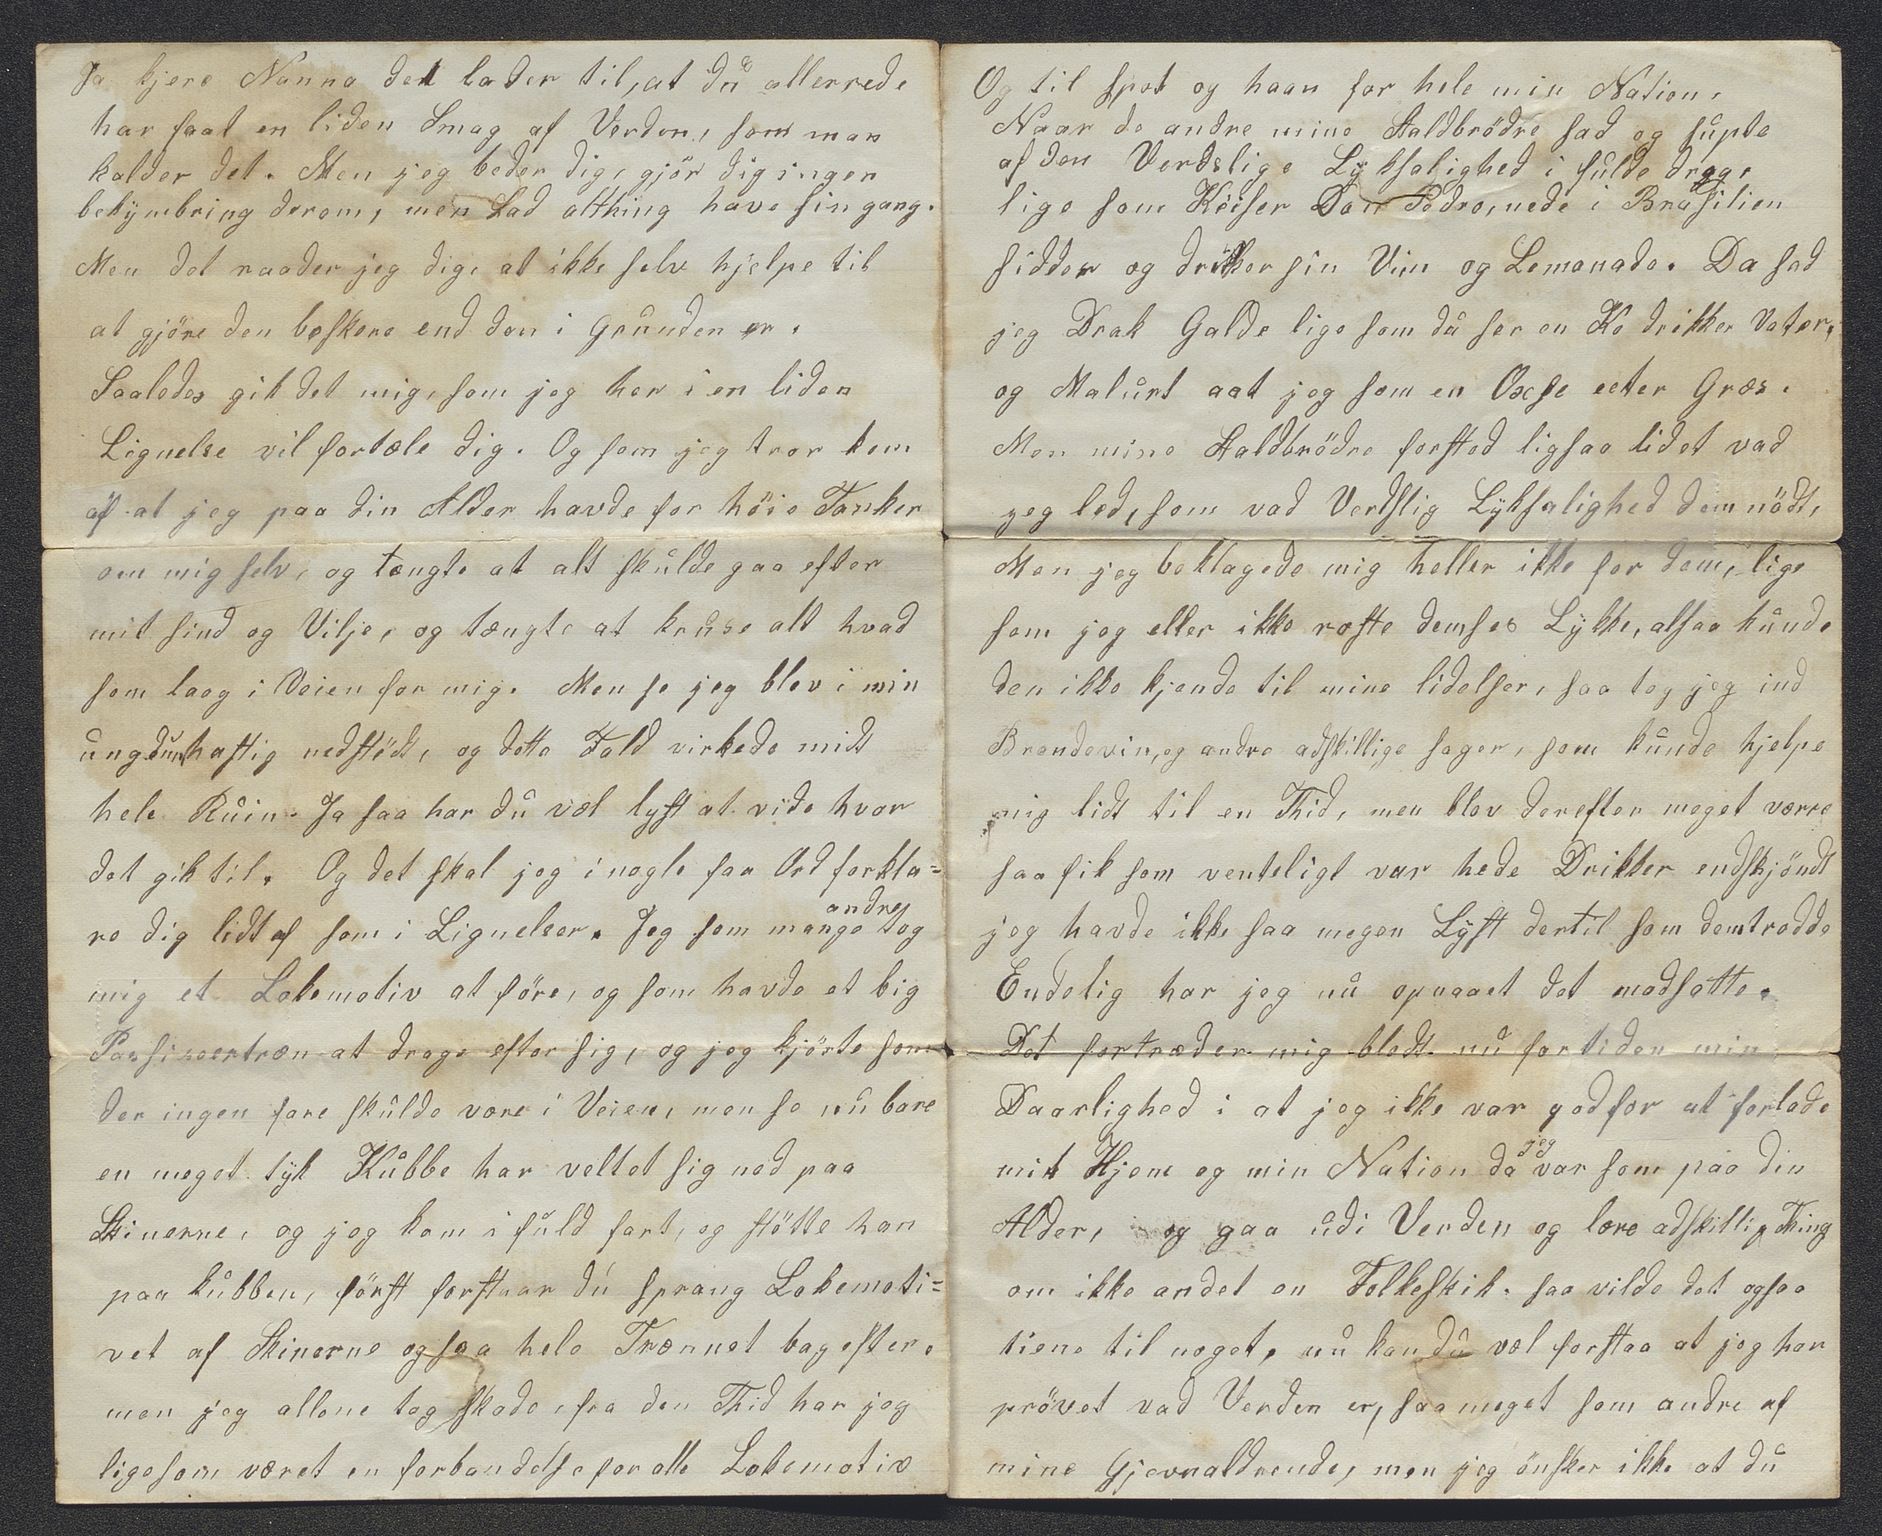 Ja kjere Nanna det lader til, at du allerrede
har faat en liden Smag af Verden, som man
kalder det. Men jeg beder dig, gjör dig ingen
bekymbring derom, men Lad althing have sin gang.
Men det raader jeg dig, at ikke selv hjelpe til
at gjöre den beskere end den i Grunden er.
Saaledes gik det mig, som jeg her i en liden
Lignelse vil fortæle dig. Og som jeg tror kom
af at jeg paa din Alder havde for höie Tanker
om mig selv, og tængte at alt skulde gaa efter
mit sind og Vilje, og tængte at kruse alt hvad
som laag i Veien for mig. Men se jeg blev i min
ungdum hastig nedstödt, og dette Fald virkede midt
hele Ruin. Ja saa har du vel lyst at vide hvor
det gik til. Og det skal jeg i nogle faa Ord forkla=
re dig lidt af som i Lignelser. Jeg som mange andre tog
mig et Lokemotiv at före, og som havde et big
Passiseertræn at drage efter sig, og jeg kjörte som
der ingen fare skulde vere i Veien, men se nu bare
en meget tyk Kubbe har veltet sig ned paa
Skinerne, og jeg kom i fuld fart, og stötte han
paa kubben, först forstaar du sprang Lokemoti=
vet af Skinerne og saa hele Trænnet bag efter.
men jeg allene tog skade, fra den Thid har jeg
ligesom været en forbandelse for alle Lokemotiv
Og til spot og haan for hele min Nation,
Naar de andre mine Staldbrödre sad og supte
af den Verdslige Lyksalighed i fulde drag,
lige som Keiser Don Pedro, nede i Brasilien
sidder og drikker sin Vin og Lemonade. Da sad
jeg Drak Galde lige som du ser en Ko drikker Vater,
og Malurt aat jeg som en Oxse eeter Græs.
Men mine Staldbrödre forstod ligsaa lidet vad
jeg led, som vad Verdslig Lyksalighed dem nödt,
Men jeg beklagede mig heller ikke for dem, lige
som jeg eller ikke roste demses Lykke, alsaa kunde
den ikke kjende til mine lidelser, saa tog jeg ind
Brendevin, og andre adskillige sager, som kunde hjelpe
mig lidt til en Thid, men blev derefter meget værre
saa fik som venteligt var hede Drikker endskjöndt
jeg havde ikke saa megen Lyst dertil som dem trodde
Endelig har jeg nu opnaaet det modsatte.
Det fortræder mig blodt nu for tiden min
Daarlighed i at jeg ikke var god for at forlade
mit Hjem og min Nation da jeg var som paa din
Alder, og gaa udi Verden og lære adskillig Thing
om ikke andet en Folkeskik. saa vilde det ogsaa
tiene til noget. nu kan du vel forstaa at jeg har
prövet vad Verden er, saa meget som andre af
mine Gjevnaldrende, men jeg önsker ikke at du